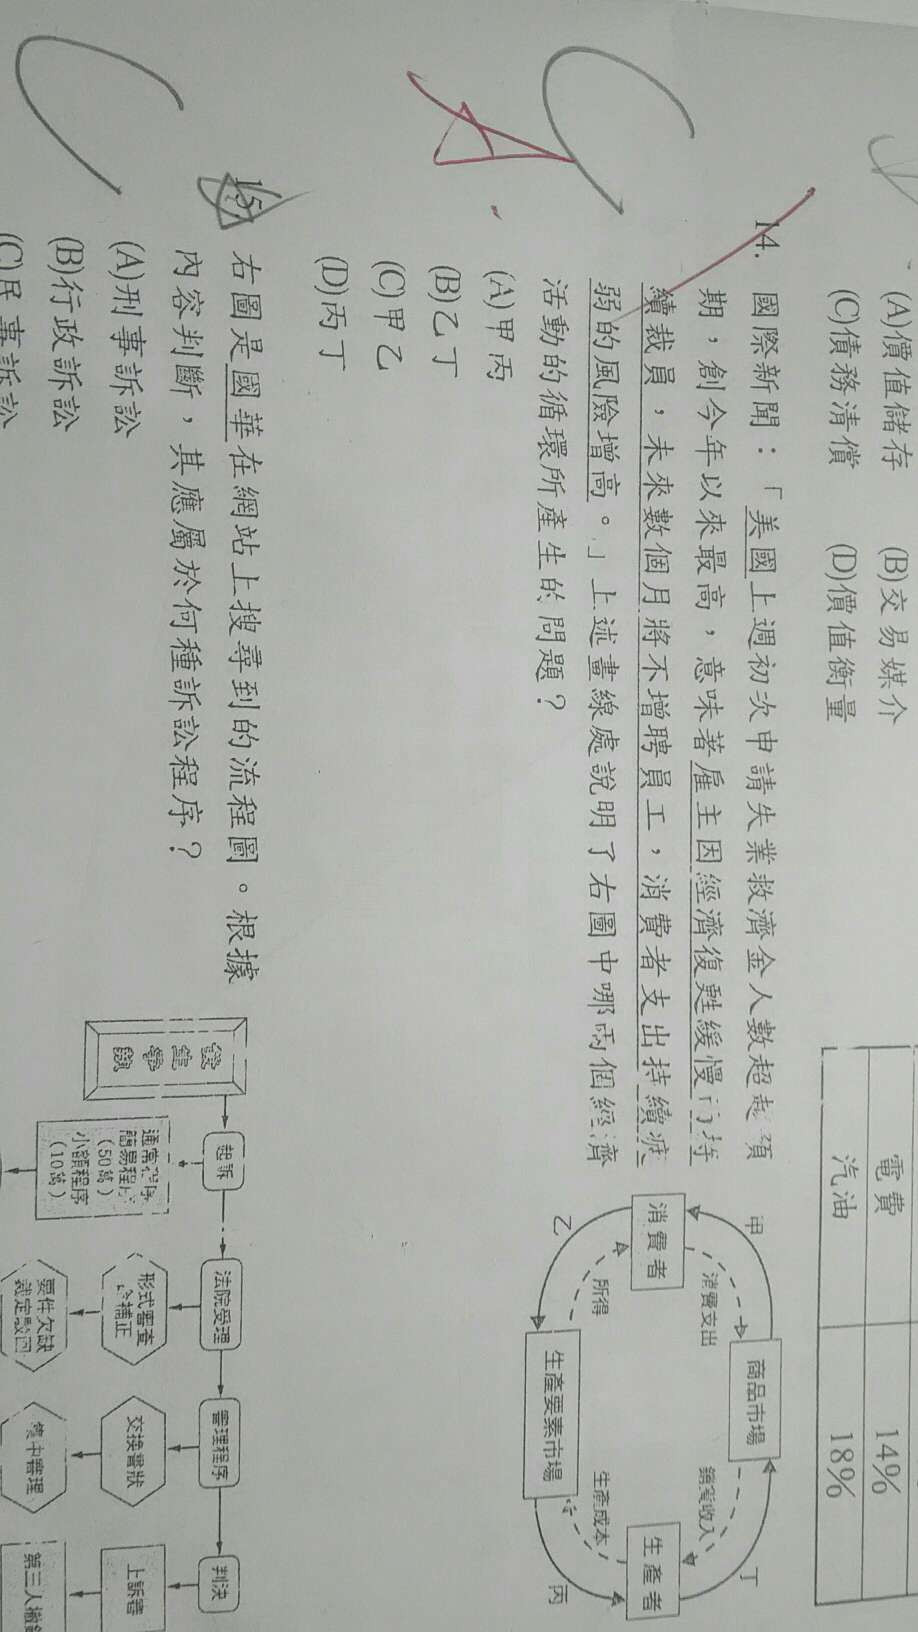 (A)價值儲存 (B)交易媒介
(C)債務清償 (D)價值衡量
電費 14%
汽油 18%
14. 國際新聞：「美國上週初次申請失業救濟金人數超越預
期，創今年以來最高，意味著雇主因經濟復甦緩慢而持
續裁員，未來數個月將不增聘員工，消費者支出持續疲
弱的風險增高。」上述畫線處說明了右圖中哪兩個經濟
活動的循環所產生的問題？
(A)甲丙
(B)乙丁
(C)甲乙
(D)丙丁
甲
消費支出
商品市場
銷貨收入
丁
消費者
生產者
乙
所得
生產要素市場
生產成本
丙
C
A
15. 右圖是國華在網站上搜尋到的流程圖。根據
內容判斷，其應屬於何種訴訟程序？
(A)刑事訴訟
(B)行政訴訟
(C)民事訴訟
發生爭執
起訴
法院受理
審理程序
判決
通常程序
簡易程序
(50萬)
小額程序
(10萬)
形式審查
補正
交換書狀
上訴審
要件欠缺
裁定駁回
集中審理
第三人撤銷
C